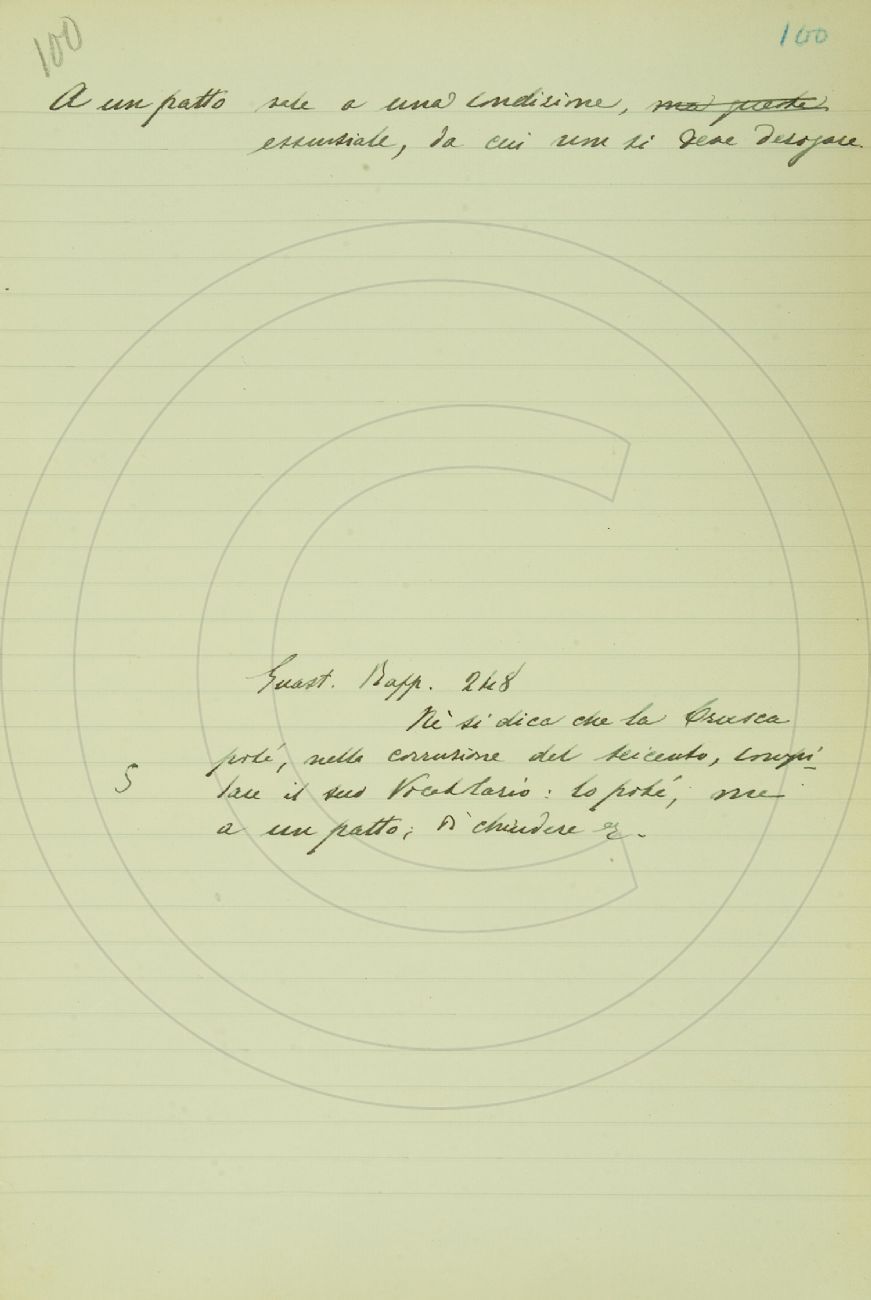 100 100
A un patto vale a una condizione, ma questa
essenziale, da cui non si deve derogare.
Guast. Rapp. 248
Nè si dica che la Crusca
poté, nella corruzione del seicento, compi-
lare il suo Vocabolario: lo poté, ma
a un patto; di chiudere